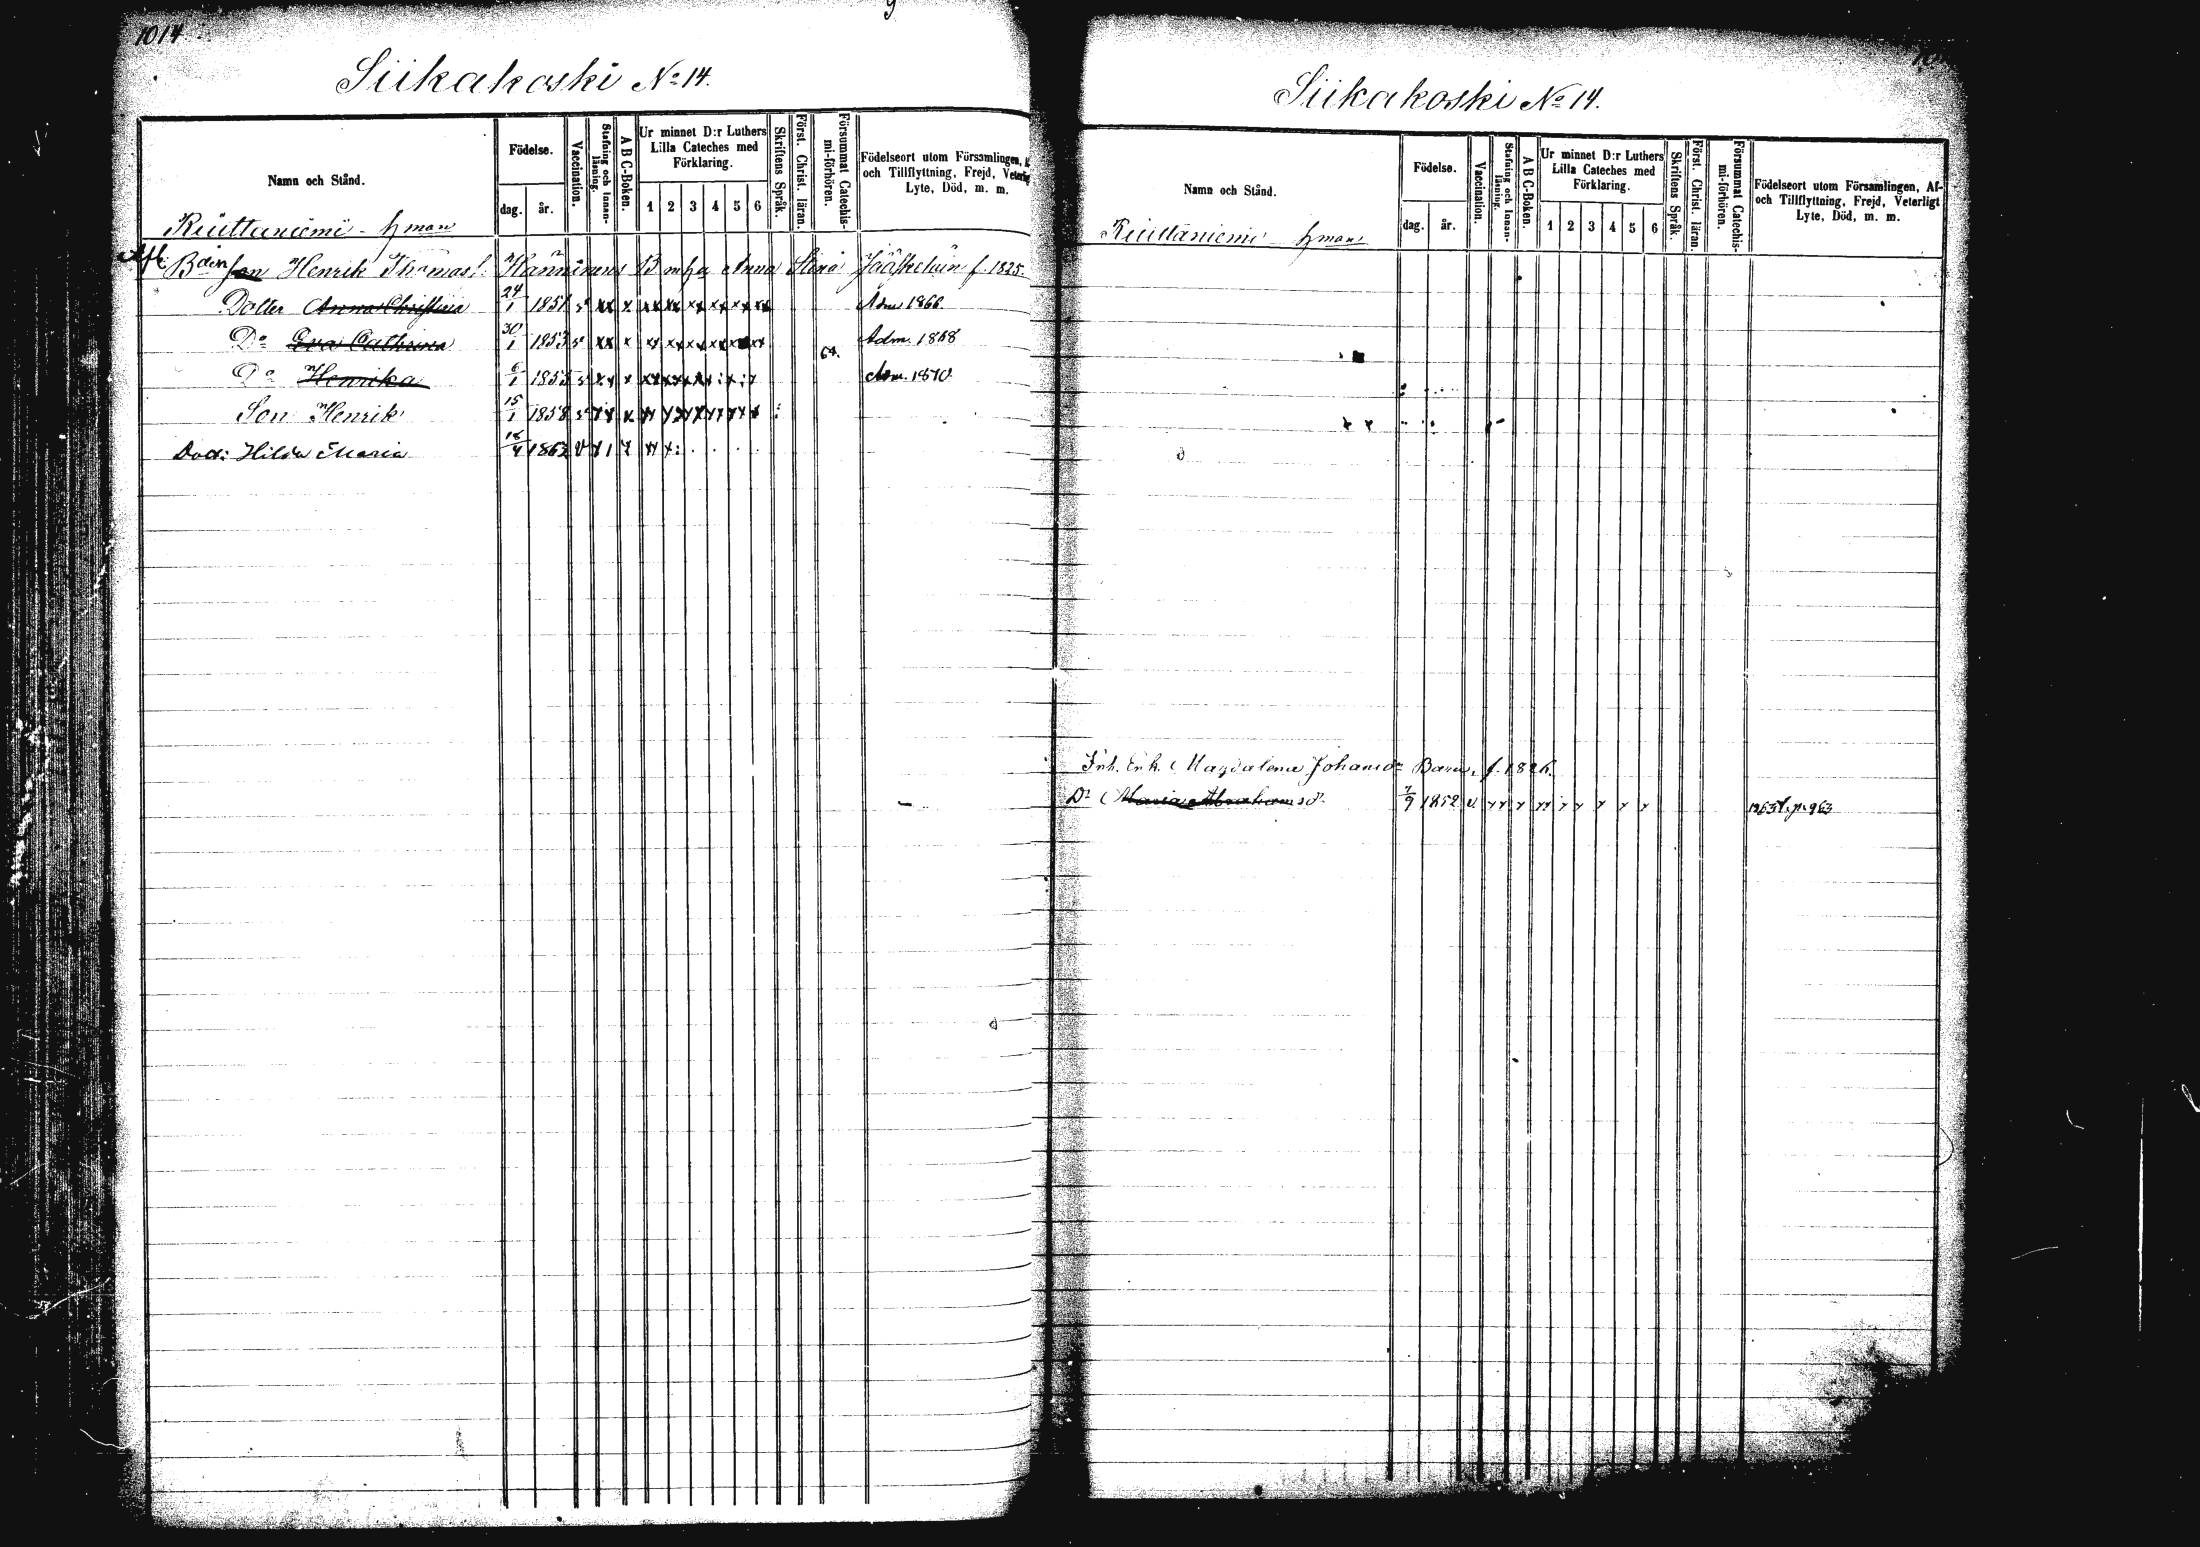 1014
Siikakoski No 14.
Namn och Stånd.
Födelse.
dag. år.
Vaccination.
Stafning och Innanläsning.
A B C-Boken.
Ur minnet D:r Luthers
Lilla Cateches med
Förklaring.
1 2 3 4 5 6
Skriftens Språk.
Först. Christ. läran.
Försummat Catechismi-förhören.
Födelseort utom Församlingen,
och Tillflyttning, Frejd,
Lyte, Död, m. m.
Henrik Hänninens Anna Stina Jääskeläin f. 1825.
Dotter Anna Christina 24/1 1851 Adm 1866
Do Eva Cathrina 30/1 1853 64. Adm. 1868
Do Henrika 6/1 1855 Adm. 1870
Son Henrik 15/1 1858
Hilda Maria 18/4 1862
Siikakoski No 14.
Namn och Stånd.
Födelse.
dag. år.
Vaccination.
Stafning och Innanläsning.
A B C-Boken.
Ur minnet D:r Luthers
Lilla Cateches med
Förklaring.
1 2 3 4 5 6
Skriftens Språk.
Först. Christ. läran.
Försummat Catechismi-förhören.
Födelseort utom Församlingen, Af-
och Tillflyttning, Frejd, Veterligt
Lyte, Död, m. m.
Inh. Enk. Magdalena Johansdr Barn, f. 1826.
Dr Maria Abrahamsdr 7/9 1852 p. 963